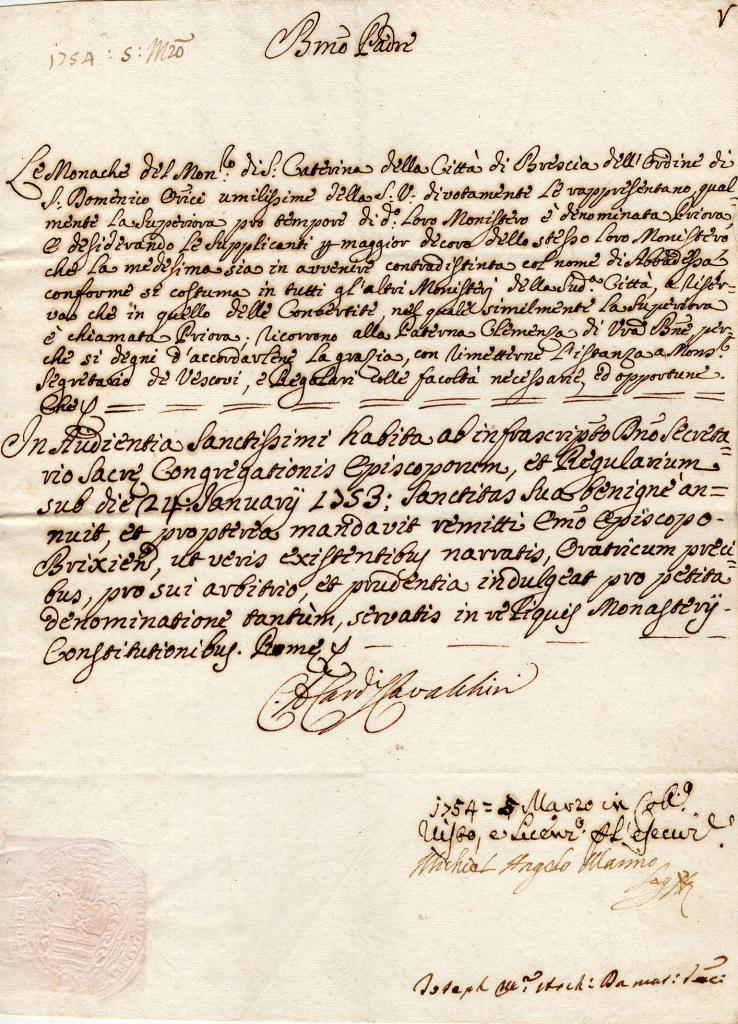 V
1754: 5: Mzo
Bmo Padre
Le Monache del Mon.ro di S. Caterina della Città di Brescia dell'Ordine di
S. Domenico Orici umilissime della S. V. divotamente Le rappresentano, qual-
mente La Superiora pro tempore di d.o Loro Monistero è denominata Priora,
E desiderando Le Supplicanti p maggior decoro dello stesso Loro Monistero
che La medesima sia in avvenire contradistinta col nome di Abbadessa
conforme si costuma in tutti gl'altri Monisterj della Sud.a Città, a riser-
va che in quello delle Convertite, nel quale similmente La Superiora
è chiamata Priora; ricorrono alla Paterna Clemenza di Vra Bne, per-
che si degni d'accordarlene La grazia, con rimetterne L'istanza a Mons.r
Segretario de Vescovi, e Regolari colle facoltà necessarie, ed opportune.
Che
In Audientia Sanctissimi habita ab infrascripto Bmo Secreta-
rio Sacrę Congregationis Episcoporum, et Regularium
sub die 24 Januarij 1753; Sanctitas Sua benignè an=
nuit, et propterea mandavit remitti Emo Episcopo
Brixien, ut veris existentibus narratis, Oratricum preci-
bus, pro sui arbitrio, et prudentia indulgeat pro petita
denominatione tantùm, servatis in reliquis Monasterij
Constitutionibus. Romę
Card Cavalchini
1754 = 5 Marzo in
Visto, e Licenz.o
Michiel Angelo Marino
Joseph M.a Arch: Damas: Sec: